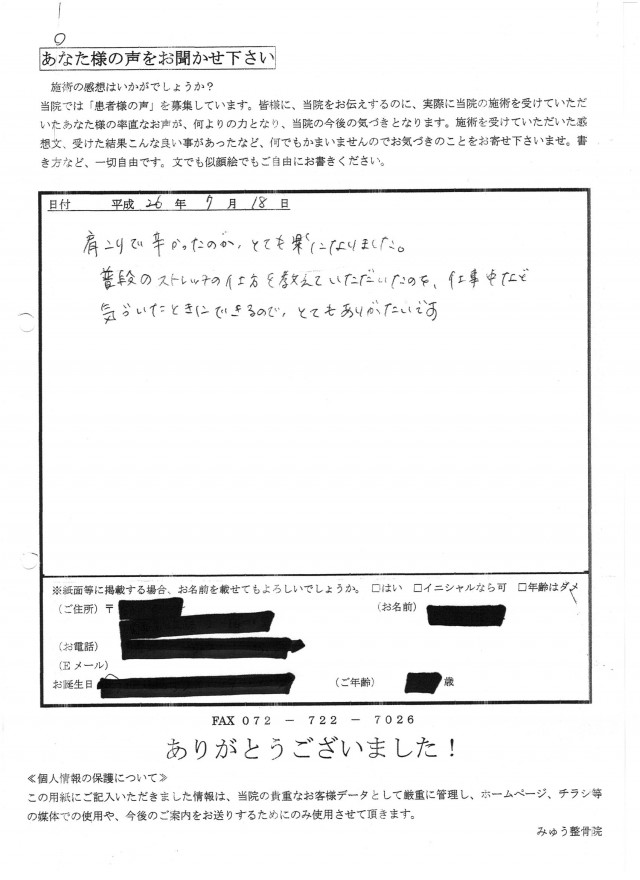 あなた様の声をお聞かせ下さい
施術の感想はいかがでしょうか？
当院では「患者様の声」を募集しています。皆様に、当院をお伝えするのに、実際に当院の施術を受けていただ
いたあなた様の率直なお声が、何よりの力となり、当院の今後の気づきとなります。施術を受けていただいた感
想文、受けた結果こんな良い事があったなど、何でもかまいませんのでお気づきのことをお寄せ下さいませ。書
き方など、一切自由です。文でも似顔絵でもご自由にお書きください。
日付 平成 26 年 7 月 18 日
肩こりで辛かったのが、とても楽になりました。
普段のストレッチの仕方を教えていただいたのを、仕事中など
気づいたときにできるので、とてもありがたいです
※紙面等に掲載する場合、お名前を載せてもよろしいでしょうか。 □はい □イニシャルなら可 □年齢はダメ
（ご住所）〒 （お名前）
（お電話）
（Eメール）
お誕生日 （ご年齢） 歳
FAX 072 － 722 － 7026
ありがとうございました！
≪個人情報の保護について≫
この用紙にご記入いただきました情報は、当院の貴重なお客様データとして厳重に管理し、ホームページ、チラシ等
の媒体での使用や、今後のご案内をお送りするためにのみ使用させて頂きます。
みゅう整骨院